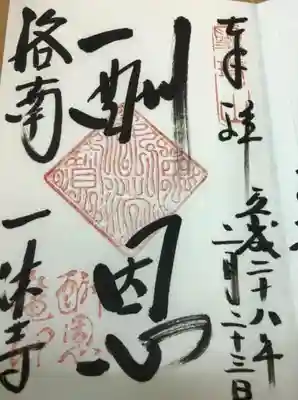 奉拝
平成二十八年
二月二十三日
酬恩
洛南 一休寺